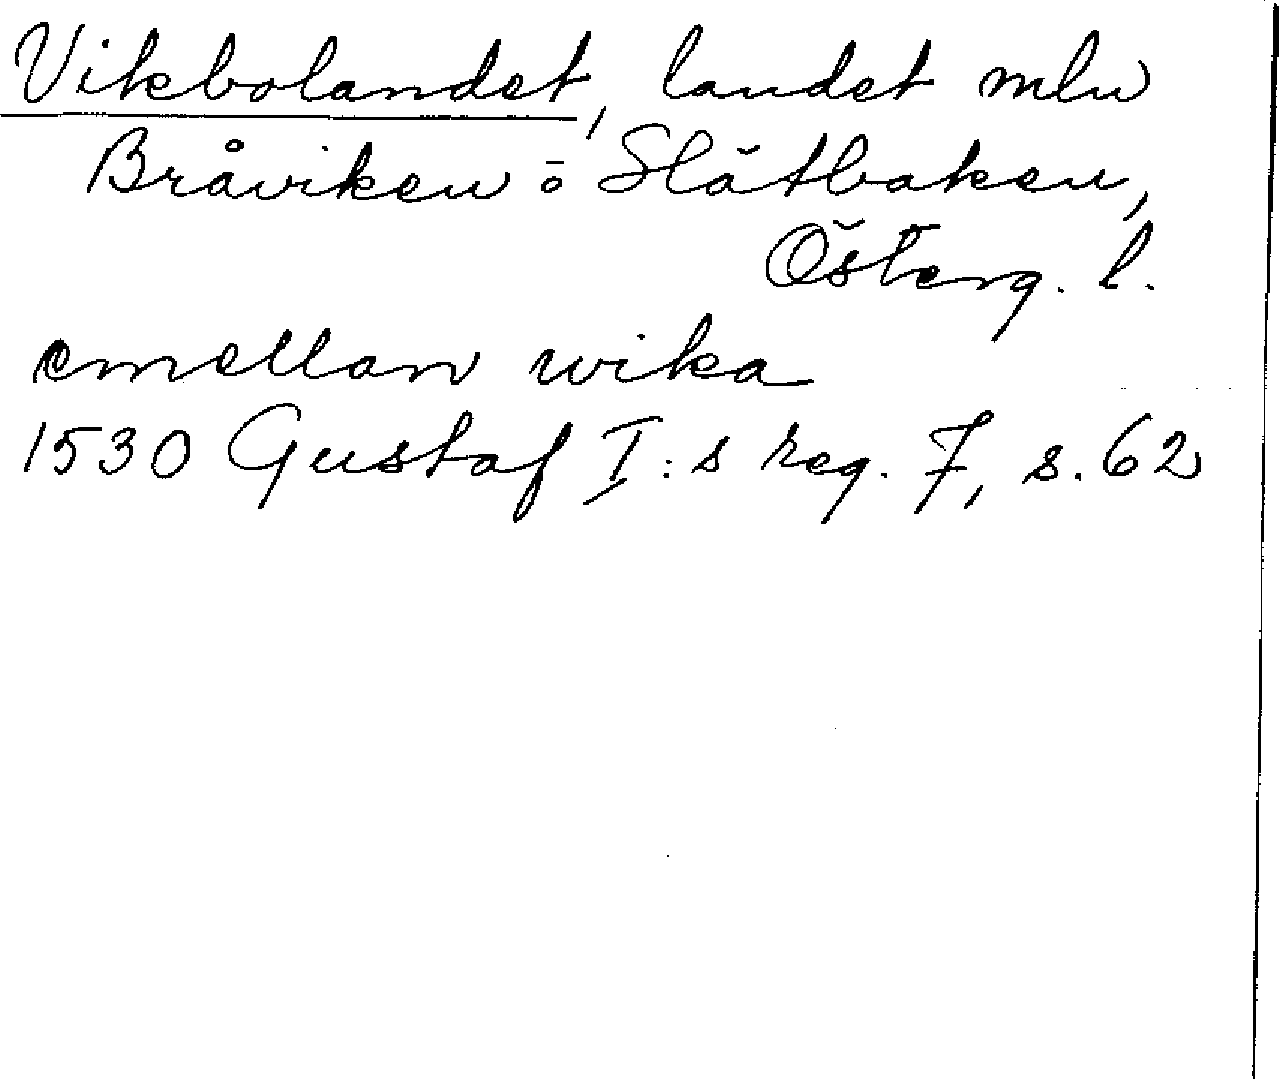 Vikbolandet, landet mln
Bråviken ō Slätbaken,
Österg. l.
emellan wika
1530 Gustaf I:s reg. 7, s. 62